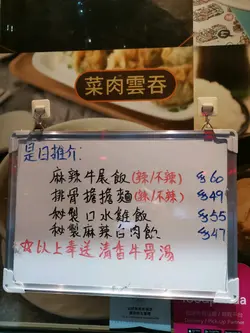 菜肉雲吞
是日推介:
麻辣牛展飯(辣/不辣) $60
排骨擔擔麵(辣/不辣) $49
秘製口水雞飯 $55
秘製麻辣白肉飯 $47
☆以上奉送清香牛骨湯